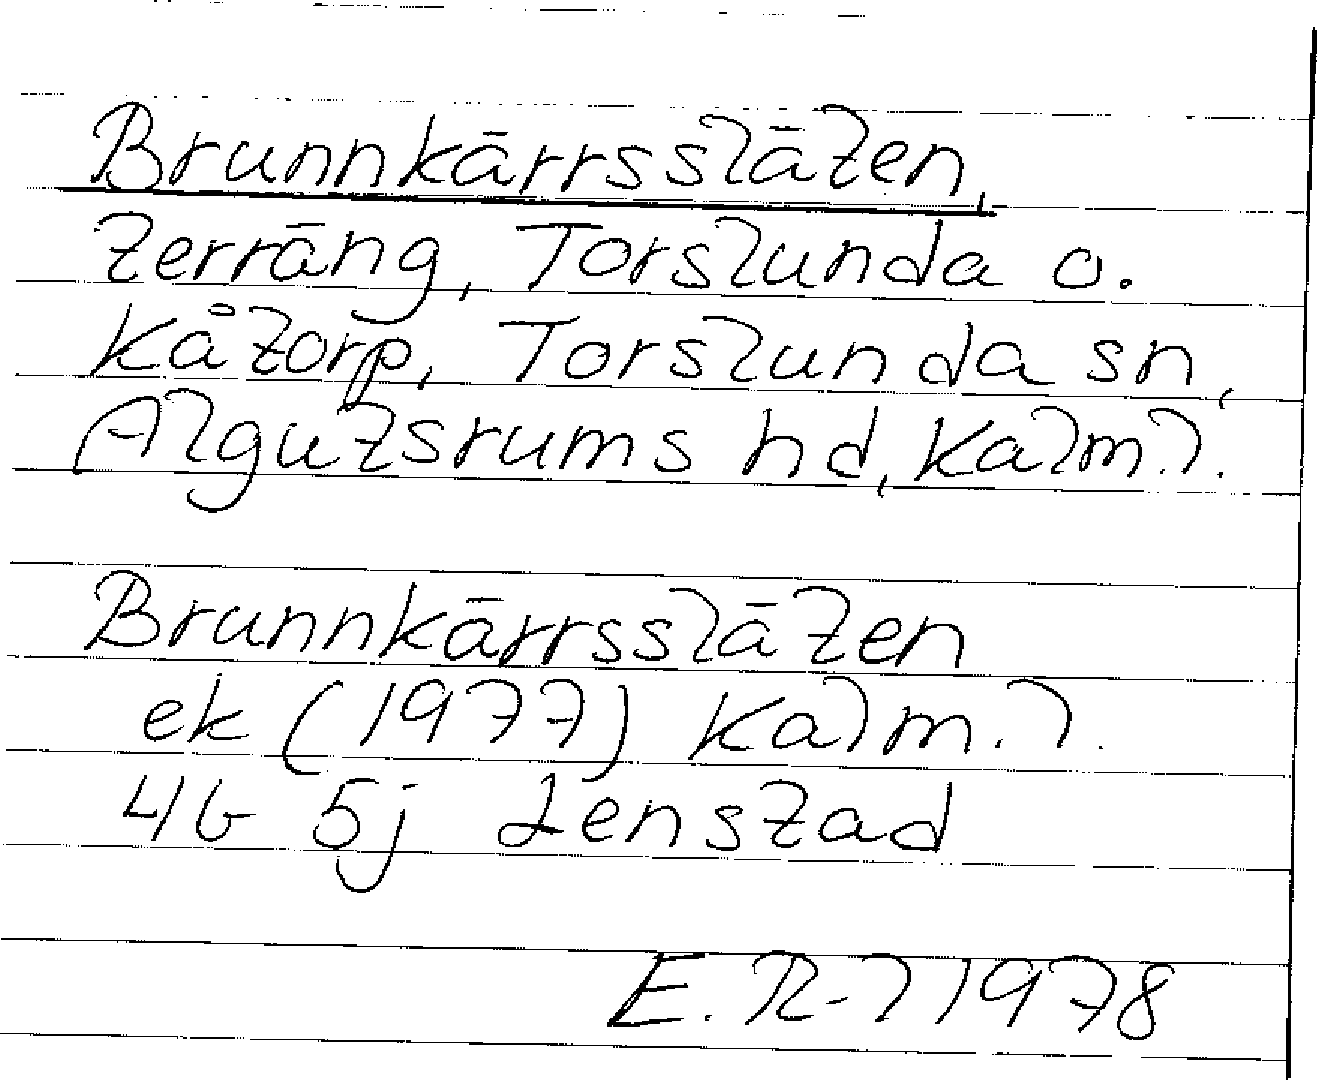 Brunnkärrssläten,
terräng, Torslunda o.
Kåtorp, Torslunda sn,
Algutsrums hd, Kalm.l.
Brunnkärrssläten
ek (1977) Kalm.l.
4G 5j Lenstad
E. R-l 1978